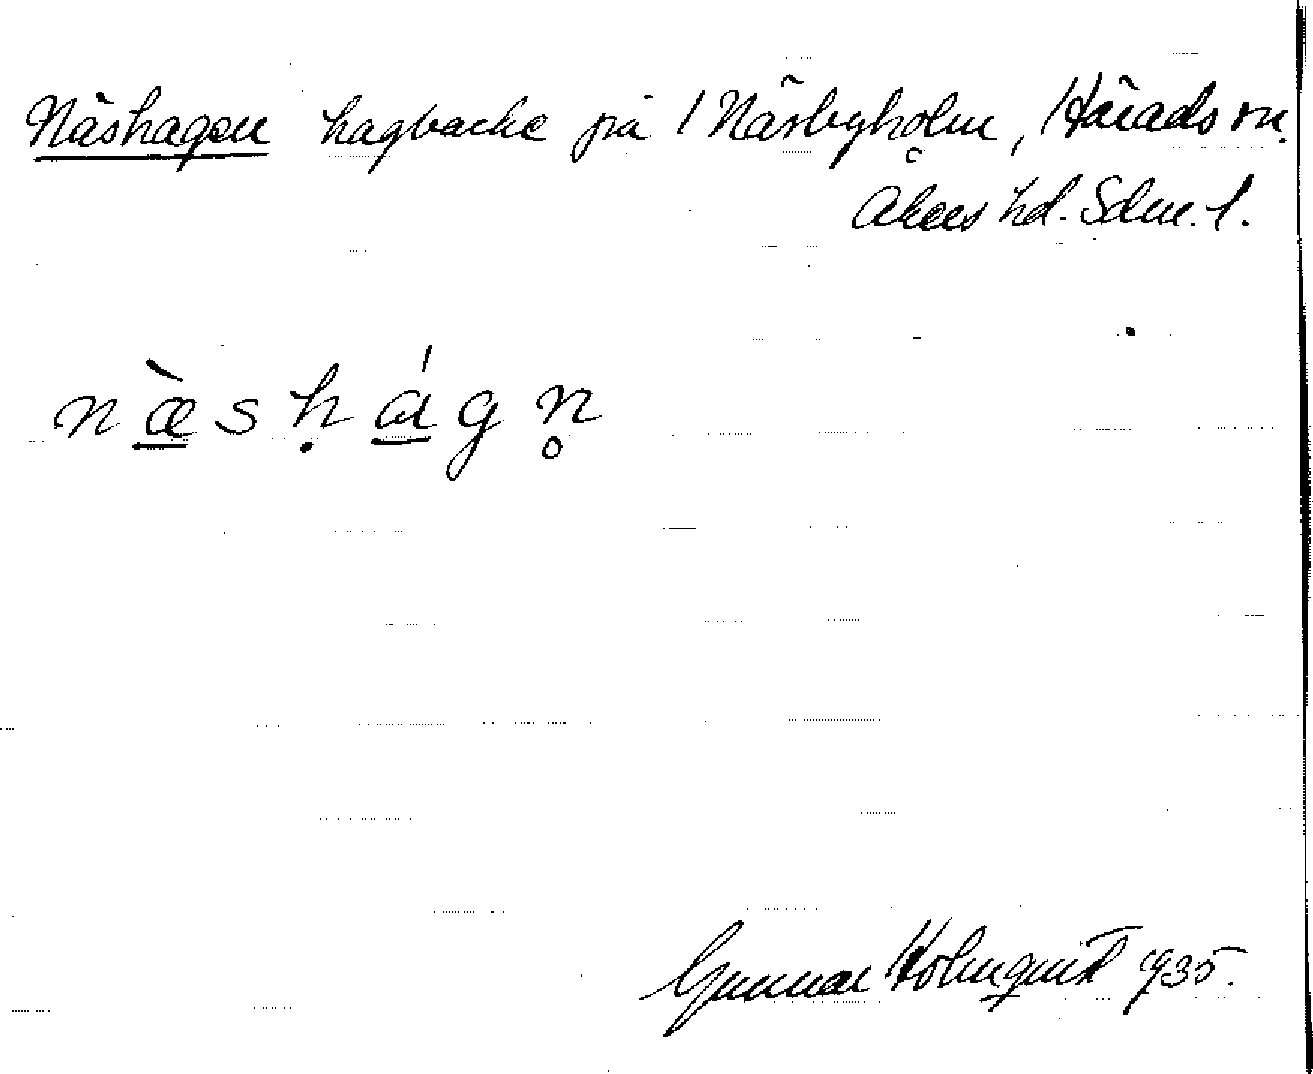 Näshagen hagbacke på Näsbyholm, Härads sn.
Åkers hd. Sdm. l.
n æ̀ s ḥ á g n̥
Gunnar Holmquist 1935.